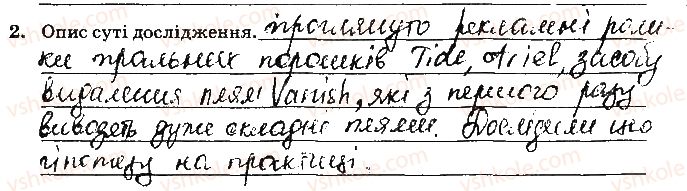 2. Опис суті дослідження. проглянуто рекламні роли-
ки пральних порошків Tide, Ariel, засобу
видалення плям Vanish, які з першого разу
виводять дуже складні плями. Дослідили цю
гіпотезу на практиці.